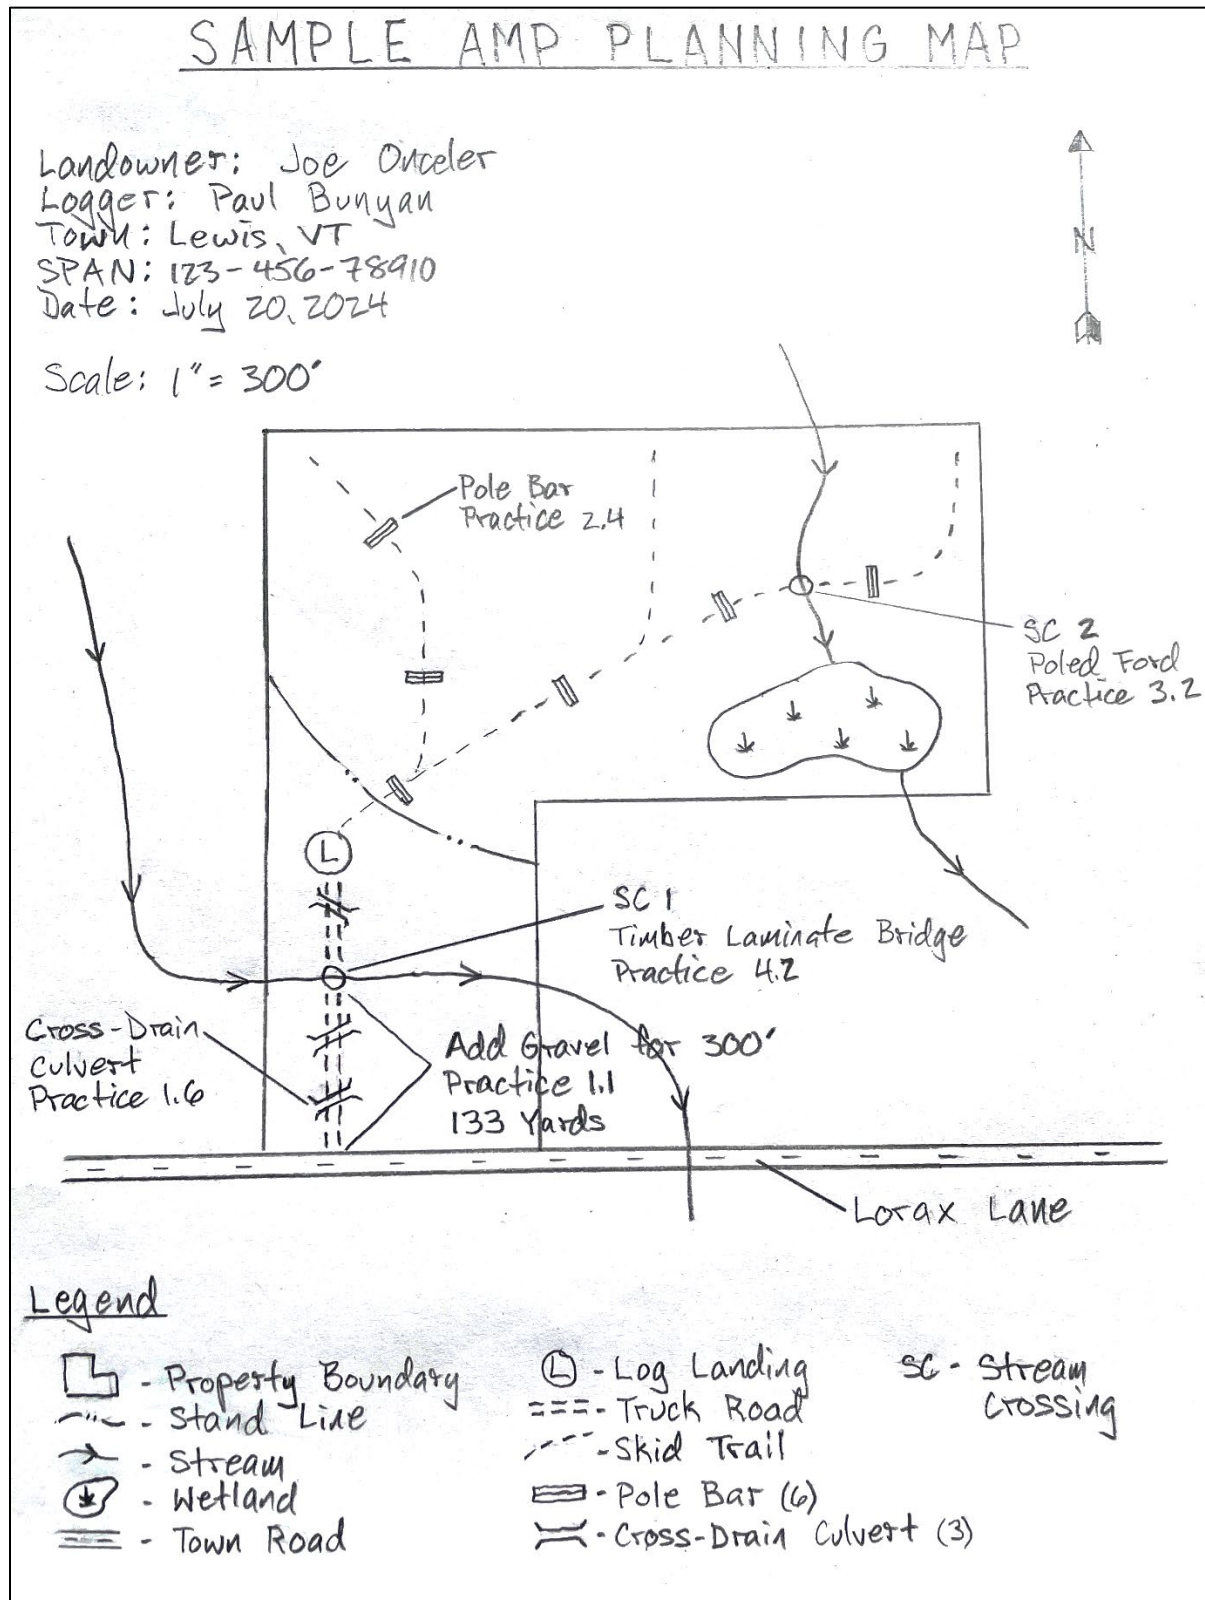 SAMPLE AMP PLANNING MAP
Landowner: Joe Onceler
Logger: Paul Bunyan
Town: Lewis, VT
SPAN: 123-456-78910
Date: July 20, 2024
Scale: 1" = 300'
N
Pole Bar
Practice 2.4
SC 2
Poled Ford
Practice 3.2
L
SC 1
Timber Laminate Bridge
Practice 4.2
Cross-Drain
Culvert
Practice 1.6
Add Gravel for 300'
Practice 1.1
133 Yards
Lorax Lane
Legend
- Property Boundary
- Stand Line
- Stream
- Wetland
- Town Road
L - Log Landing
- Truck Road
- Skid Trail
- Pole Bar (6)
- Cross-Drain Culvert (3)
SC - Stream
Crossing